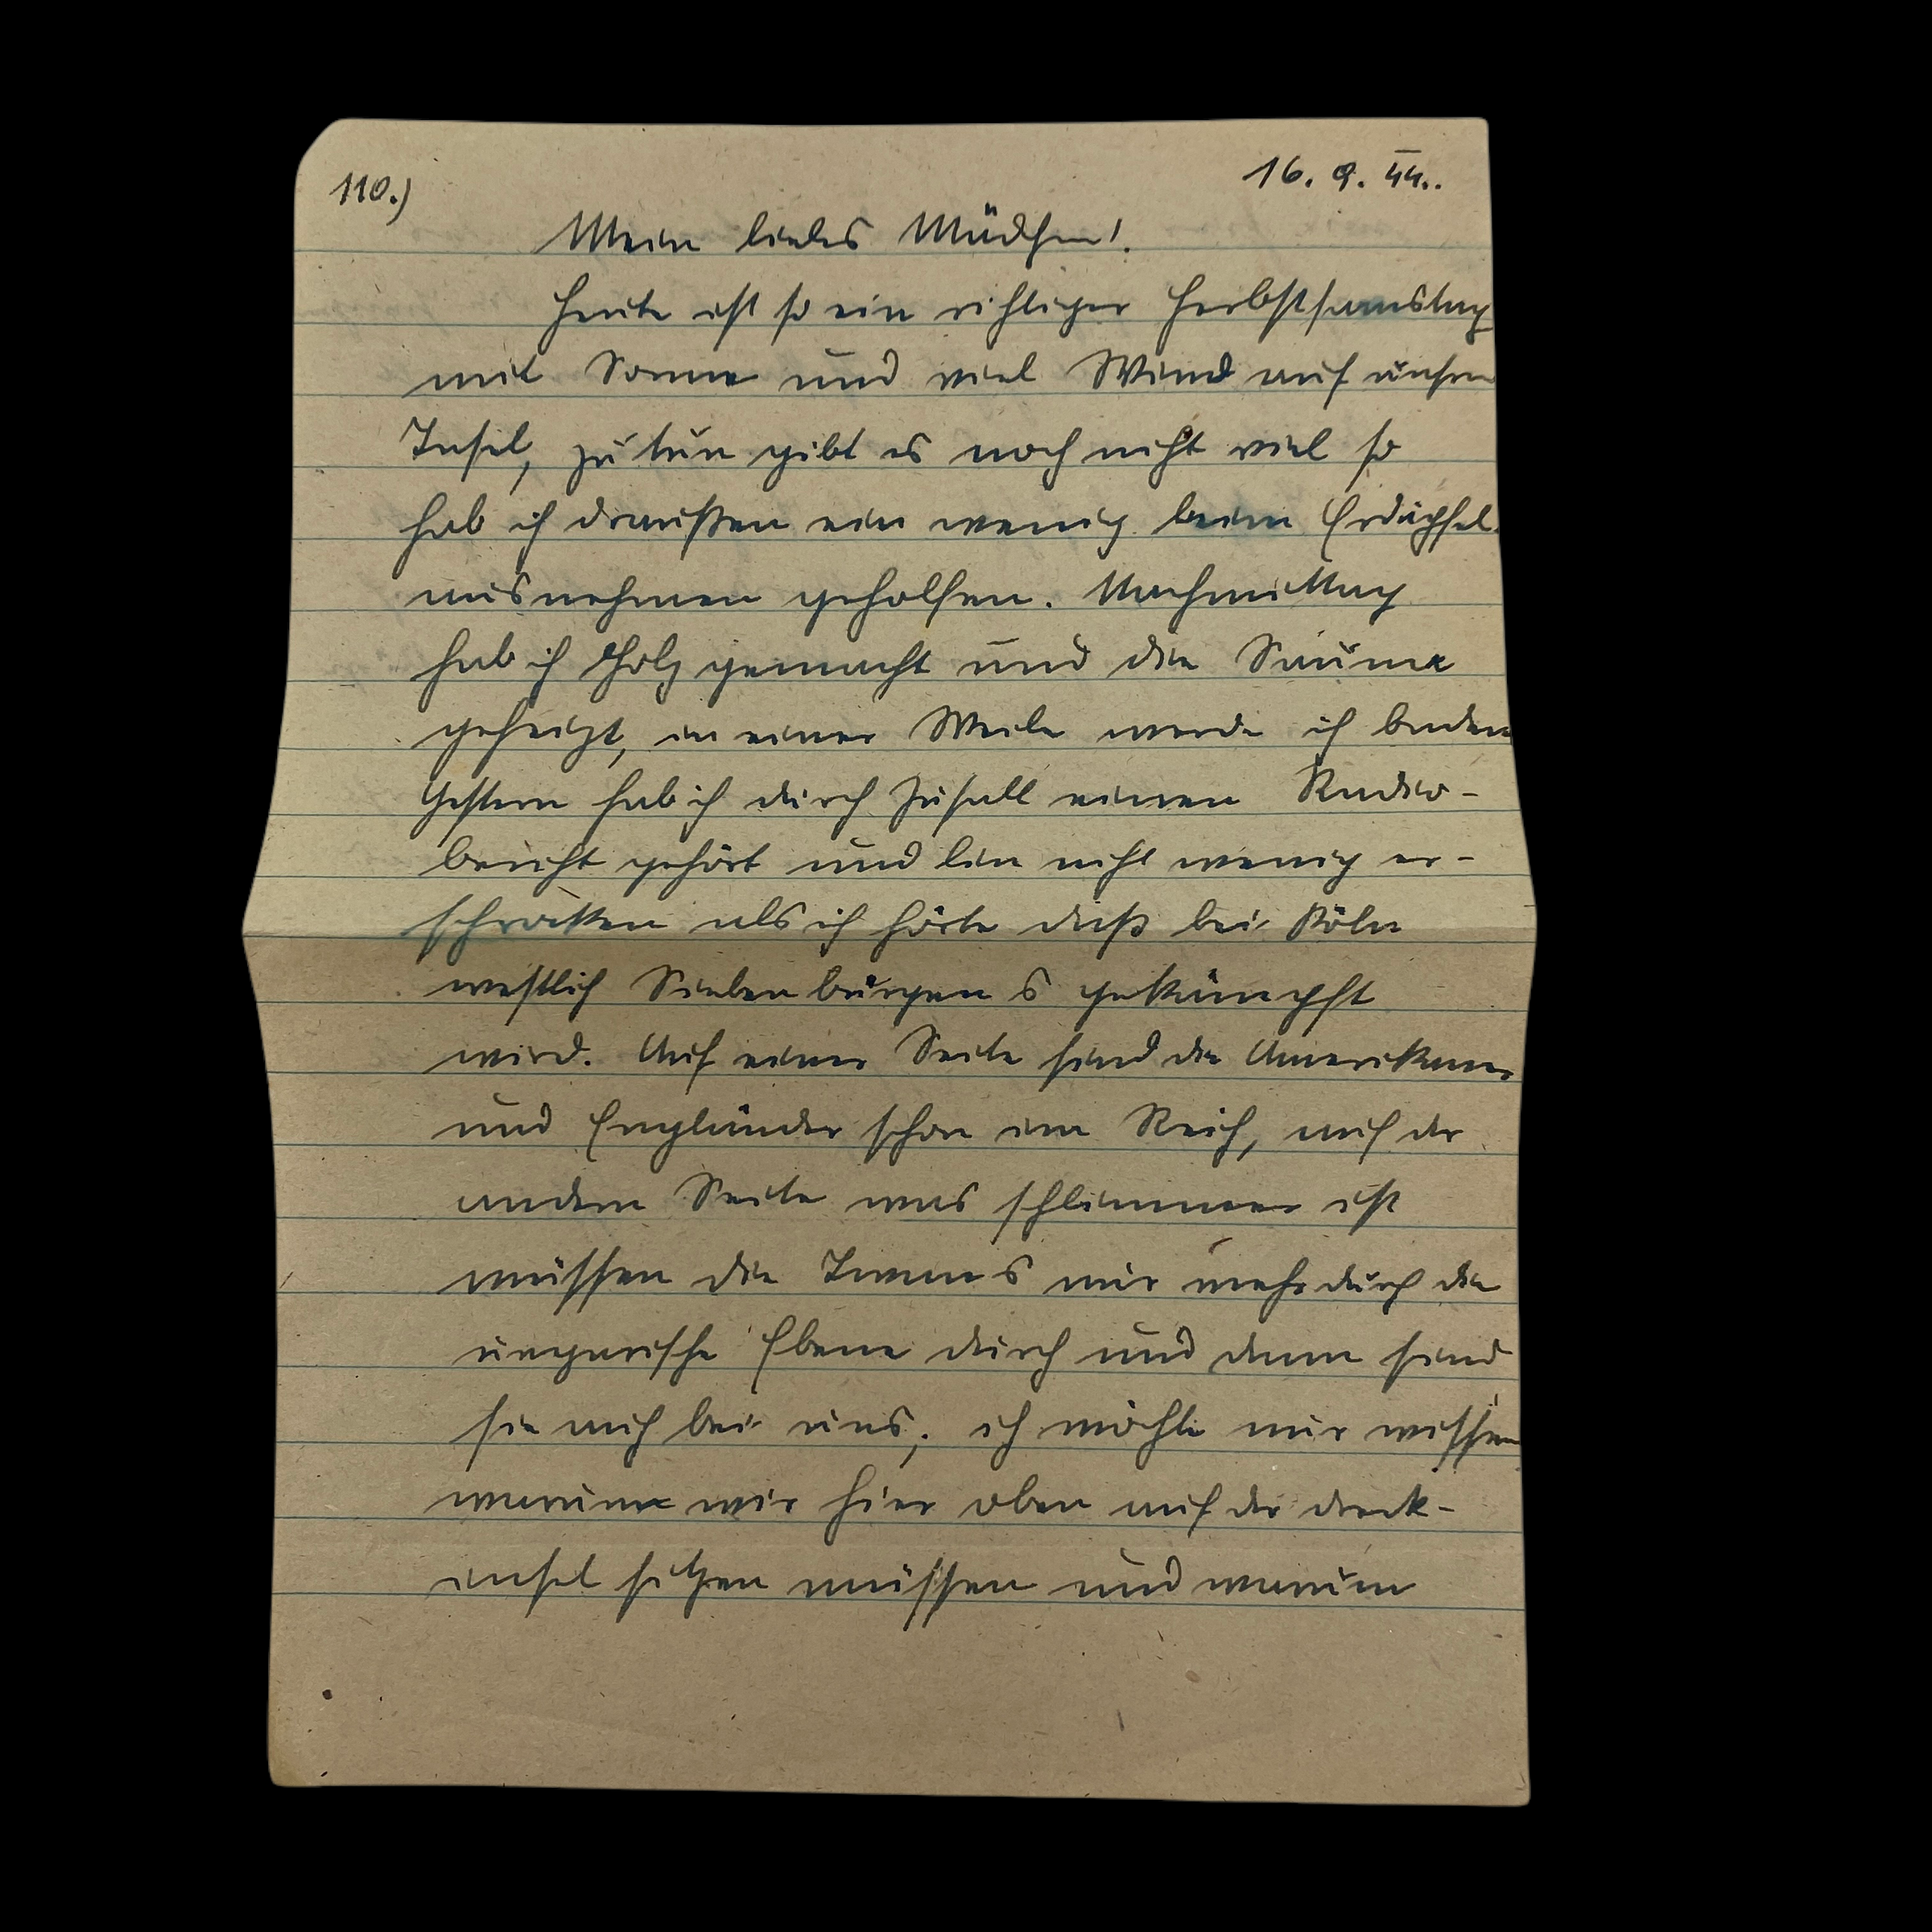 110.) 16. 9. 44..
Mein liebes Mädchen!
Heute ist so ein richtiger Herbstsamstag
mit Sonne und viel Wind auf unsrer
Insel, zu tun gibt es noch nicht viel so
hab ich draußen ein wenig beim Erdäpfel
ausnehmen geholfen. Nachmittag
hab ich Holz gemacht und die Sauna
geheizt, in einer Weile werde ich baden
Gestern hab ich durch Zufall einen Radio-
bericht gehört und bin nicht wenig er-
schrocken als ich hörte daß bei
westlich Siebenbürgens gekämpft
wird. Auf einer Seite sind die Amerikaner
und Engländer schon im Reich, auf der
andern Seite was schlimmer ist
müssen die nur mehr durch die
ungarische Ebene durch und dann sind
sie auch bei uns, ich möchte nur wissen
warum wir hier oben auf der Dreck-
insel sitzen müssen und warum